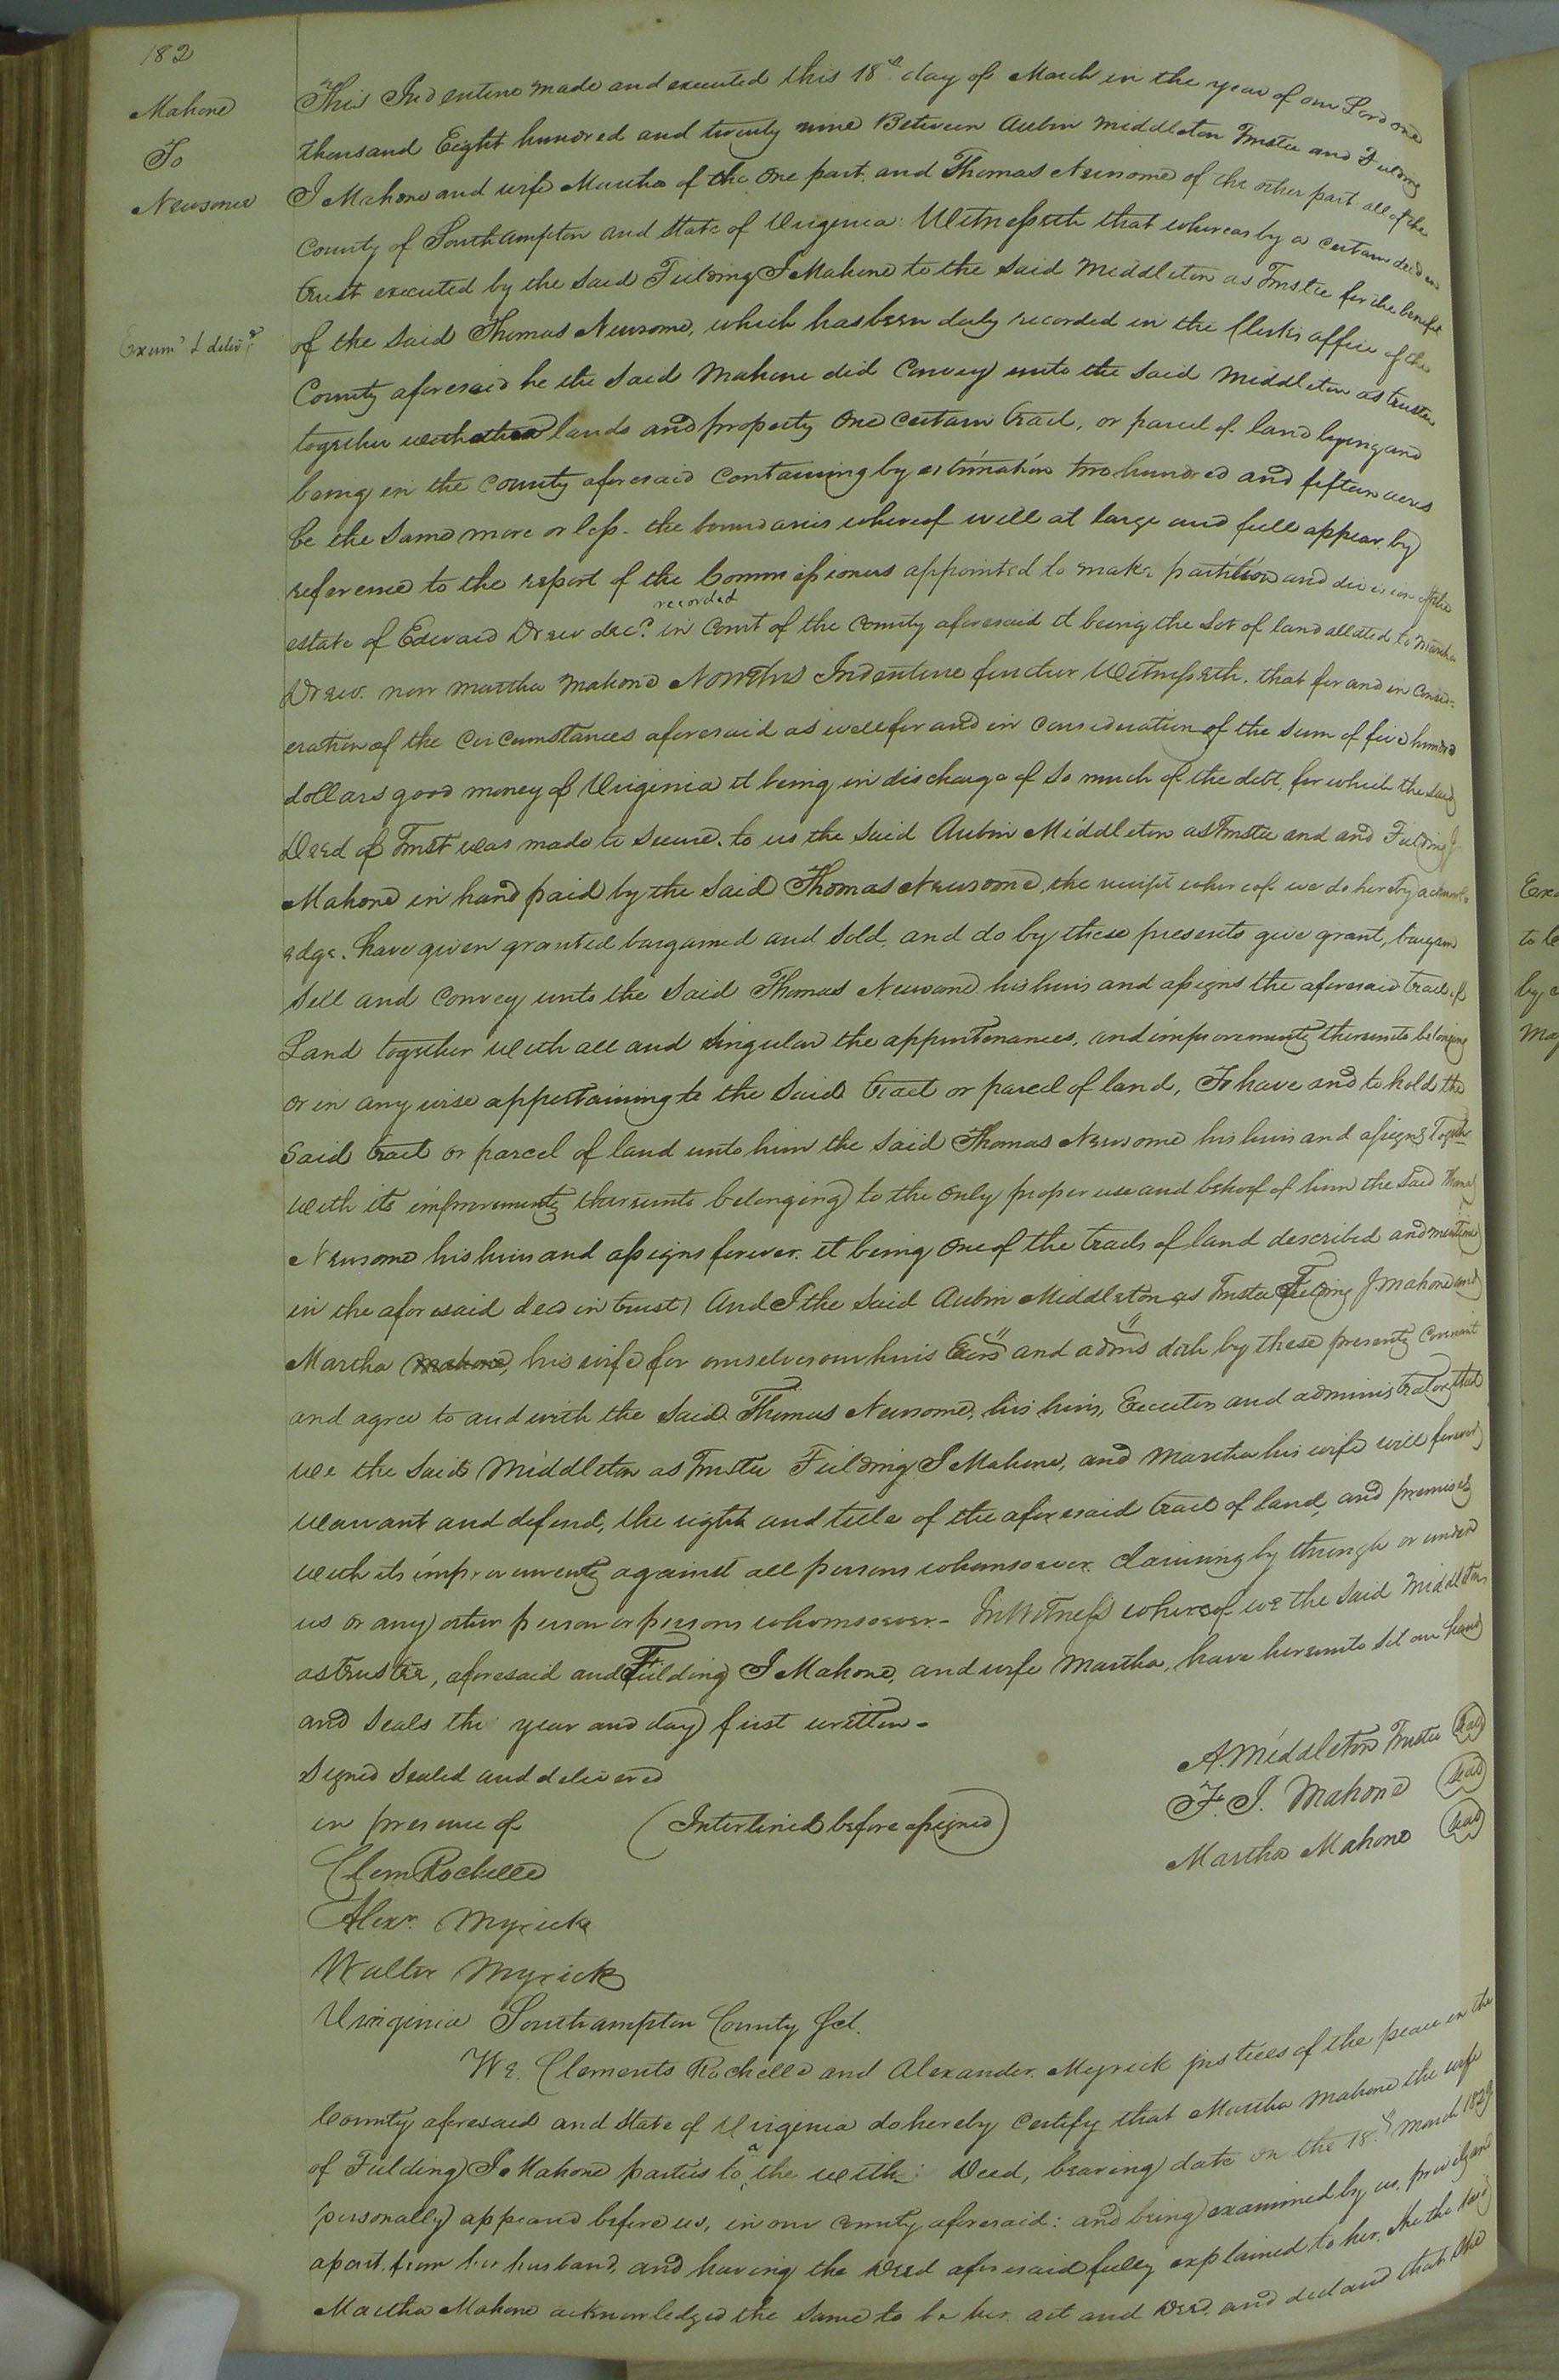 182
Mahone
To
Newsome
Exam.d & deliv.d
This Indenture made and executed this 18th day of March in the year of our Lord one
thousand Eight hundred and twenty nine Between Aubin Middleton Trustee and Fielding
J Mahone and wife Martha of the one part, and Thomas Newsome of the other part all of the
County of Southampton and State of Virginia: Witnesseth that whereas by a certain deed in
trust executed by the said Fielding J Mahone to the said Middleton as Trustee for the benefit
of the said Thomas Newsome, which has been duly recorded in the Clerks office of the
County aforesaid he the said Mahone did Convey unto the said Middleton as trustee
together with other lands and property One certain tract, or parcel of land lying and
being in the County aforesaid Containing by estimation two hundred and fifteen acres
be the same more or less. the boundaries whereof will at large and full appear by
reference to the report of the Commissioners appointed to make partition and division of the
estate of Edward Drew dec.d recorded in Court of the County aforesaid it being the Lot of land alloted to Martha
Drew. now Martha Mahone Now this Indenture further Witnesseth. that for and in Consid-
eration of the circumstances aforesaid as well for and in consideration of the sum of five hundred
dollars good money of Virginia it being in discharge of so much of the debt, for which the said
Deed of Trust was made to secure, to us the said Aubin Middleton as Trustee and and Fielding J
Mahone in hand paid by the said Thomas Newsome, the receipt whereof we do hereby acknowl-
edge. have given granted bargained and sold, and do by these presents give grant, bargain
sell and Convey unto the said Thomas Newsome his heirs and assigns the aforesaid tract of
Land together with all and singular the appurtenances, and improvements thereunto belonging
or in any wise appertaining to the said tract or parcel of land, To have and to hold the
said tract or parcel of land unto him the said Thomas Newsome his heirs and assigns together
with its improvements thereunto belonging to the only proper use and behoof of him the said Thomas
Newsome his heirs and assigns forever. it being one of the tracts of land described and mentioned
in the aforesaid deed in trust, And I the said Aubin Middleton as Trustee Fielding J Mahone and
Martha Mahone, his wife for ourselves our heirs Exrs and admrs doth by these presents Covenant
and agree to and with the said Thomas Newsome, his heirs, Executors and administrators that
we the said Middleton as Trustee Fielding J Mahone, and Martha his wife will forever
warrant and defend, the right and title of the aforesaid tract of land, and premises
with its improvements against all persons whomsoever. claiming by through or under
us or any other person or persons whomsoever - In Witness whereof we the said Middleton
as trustee, aforesaid and Fielding J Mahone, and wife Martha, have hereunto set our hand
and seals the year and day first written -
Signed Sealed and delivered
in presence of (Interlined before assigned)
A. Middleton Trustee (seal)
F. J. Mahone (seal)
Martha Mahone (seal)
Clem Rochelle
Alexr. Myrick
Walter Myrick
Virginia Southampton County Sct.
We. Clements Rochelle and Alexander Myrick justices of the peace in the
County aforesaid and State of Virginia do hereby Certify that Martha Mahone the wife
of Fielding J Mahone parties to a the with Deed, bearing date on the 18th March 1829
personally appeared before us, in our County aforesaid: and being examined by us, privily and
apart from her husband, and having the Deed aforesaid fully explained to her, she the said
Martha Mahone acknowledged the same to be her act and Deed, and declared that she
Exe
to be
by
May